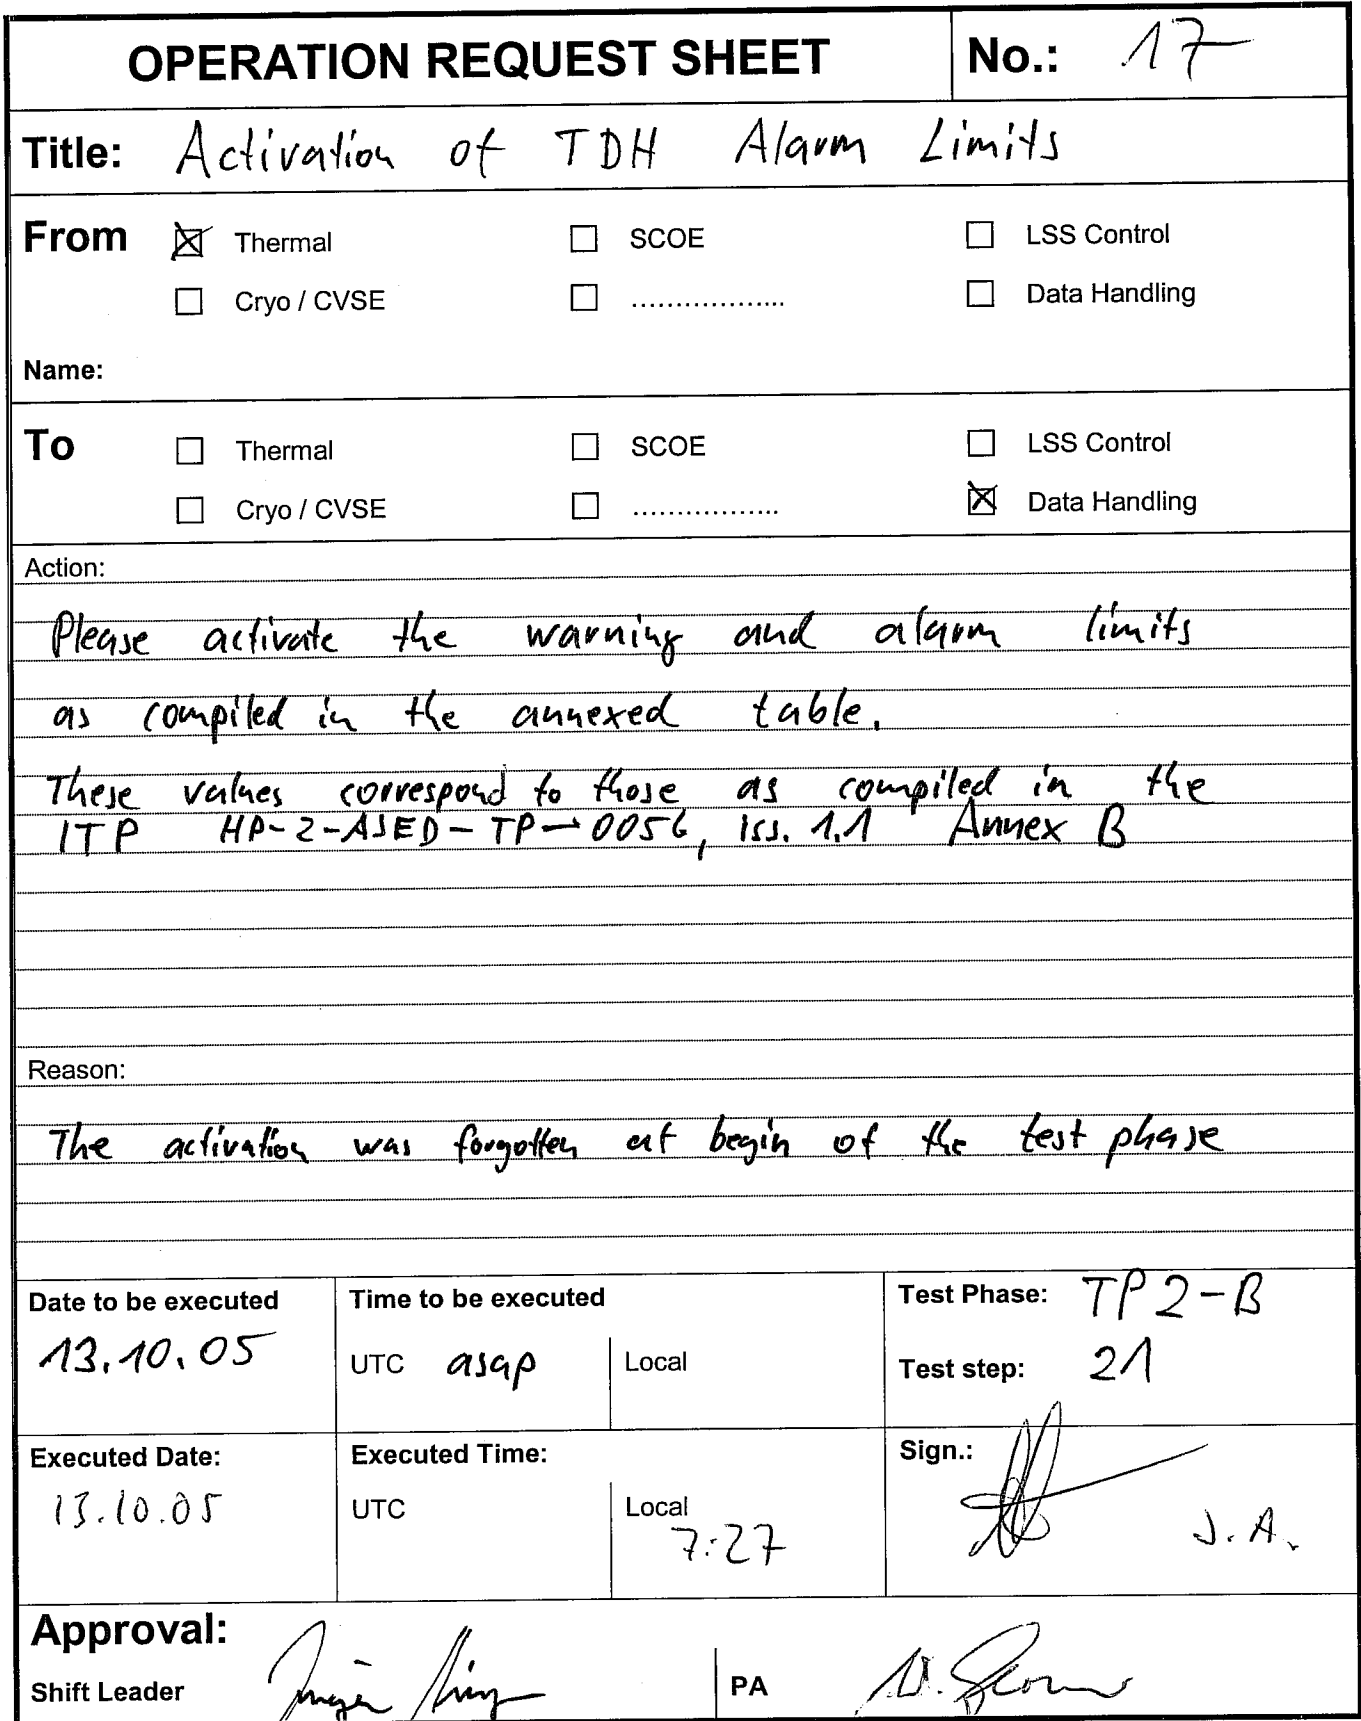 OPERATION REQUEST SHEET No.: 17
Title: Activation of TDH Alarm Limits
From Thermal SCOE LSS Control
Cryo / CVSE .................. Data Handling
Name:
To Thermal SCOE LSS Control
Cryo / CVSE ................. Data Handling
Action:
Please activate the warning and alarm limits
as compiled in the annexed table.
These values correspond to those as compiled in the
ITP HP-2-ASED-TP-0056, iss. 1.1 Annex B
Reason:
The activation was forgotten at begin of the test phase
Date to be executed Time to be executed Test Phase: TP2-B
13.10.05 UTC asap Local Test step: 21
Executed Date: Executed Time: Sign.:
13.10.05 UTC Local 7:27 J.A.
Approval:
Shift Leader PA